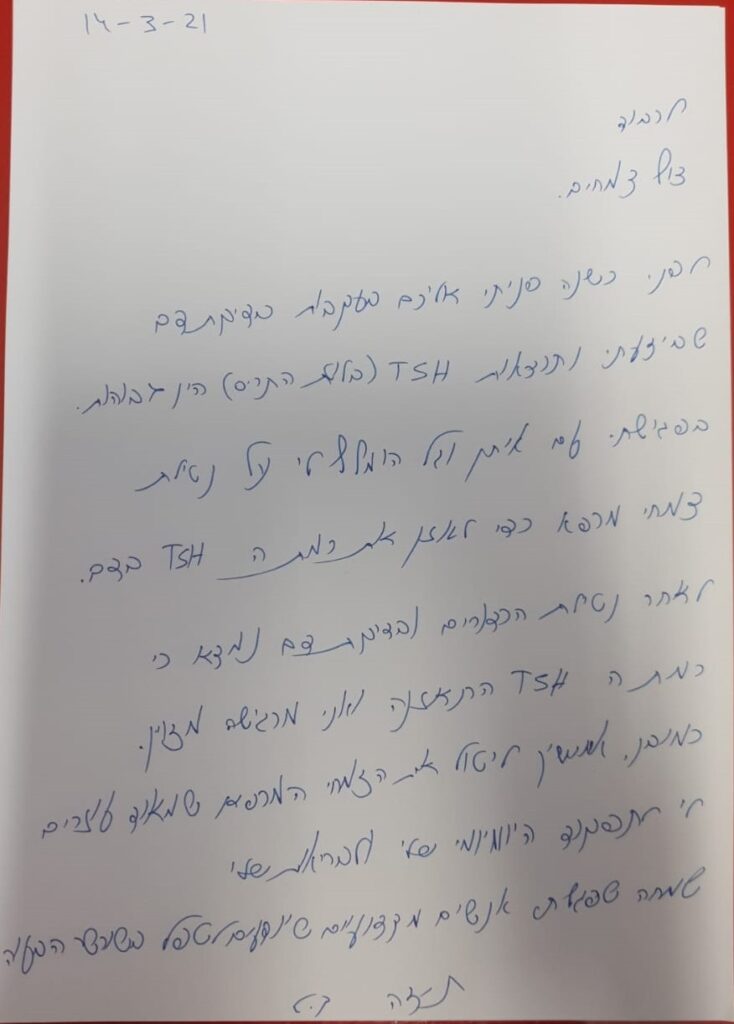 14-3-21
לכבוד
צוף צמחים.
לפני כשנה פניתי אליכם בעקבות בדיקת דם
שביצעתי ותוצאות TSH (בלוטת התריס) היו גבוהות.
בפגישתי עם איתן וגל הומלץ לי על נטילת
צמחי מרפא כדי לאזן את רמת ה TSH בדם.
לאחר נטילת הכדורים ובדיקת דם נמצא כי
רמת ה TSH התאזנה ואני מרגישה מצוין.
כמובן, אמשיך ליטול את הצמחי המרפא שמאוד עוזרים
לי לתפקוד היומיומי שלי ולבריאות שלי
שמחה שפגשתי אנשים מקצועיים שיודעים לטפל בשורש הבעיה
תודה